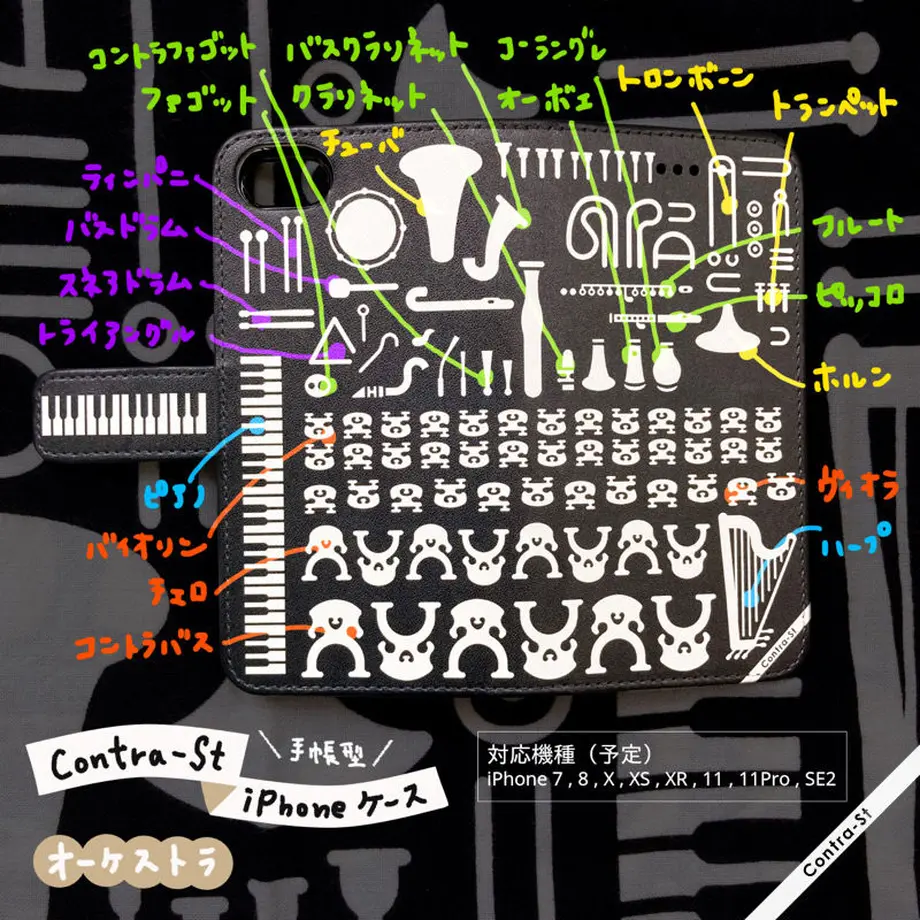 コントラファゴット バスクラリネット コーラングレ
ファゴット クラリネット オーボエ トロンボーン
チューバ トランペット
ティンパニ
バスドラム
スネアドラム
トライアングル
フルート
ピッコロ
ホルン
ピアノ
バイオリン
チェロ
コントラバス
ヴィオラ
ハープ
Contra-St
Contra-St
手帳型
iPhoneケース
オーケストラ
対応機種（予定）
iPhone 7 , 8 , X , XS , XR , 11 , 11Pro , SE2
Contra-St